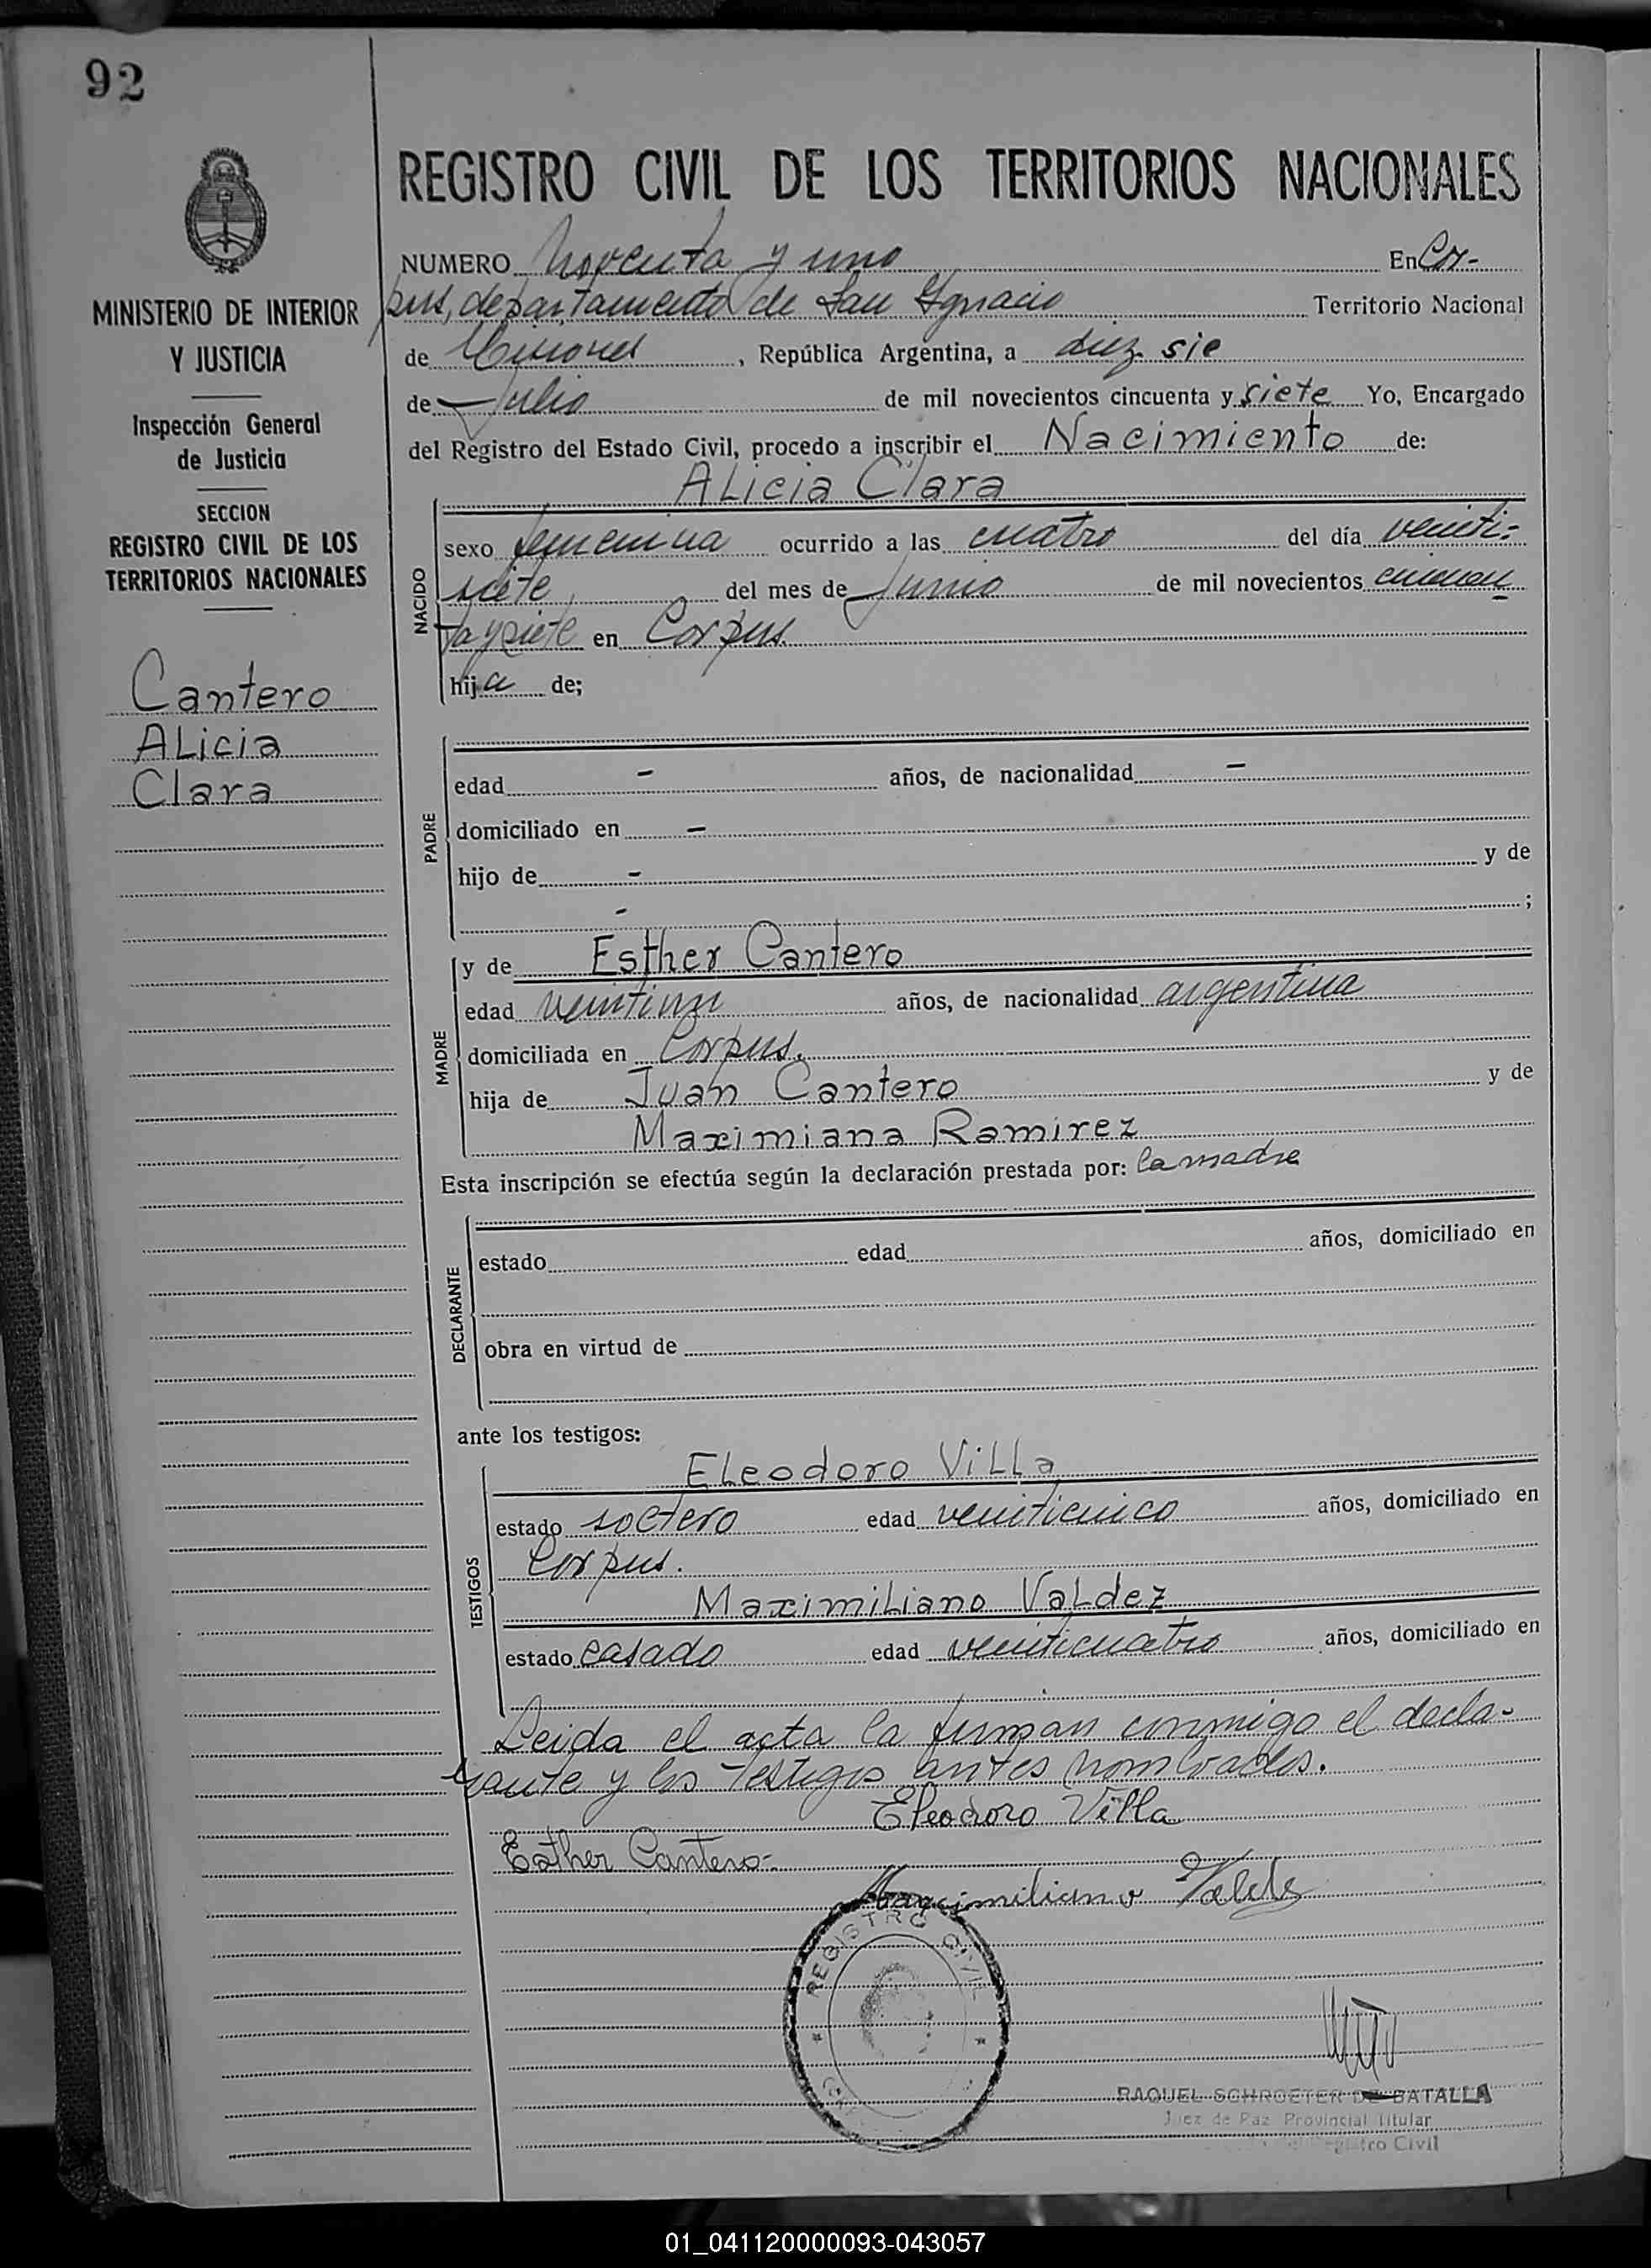 92
REGISTRO CIVIL DE LOS TERRITORIOS NACIONALES
MINISTERIO DE INTERIOR
Y JUSTICIA
Inspección General
de Justicia
SECCION
REGISTRO CIVIL DE LOS
TERRITORIOS NACIONALES
Cantero
Alicia
Clara
NUMERO Noventa y uno En Cor-
pus, departamento de San Ignacio Territorio Nacional
de Misiones, República Argentina, a diez sie
de Julio de mil novecientos cincuenta y siete Yo, Encargado
del Registro del Estado Civil, procedo a inscribir el Nacimiento de:
Alicia Clara
NACIDO
sexo femenina ocurrido a las cuatro del día veinti-
siete del mes de Junio de mil novecientos cincuen
ta y siete en Corpus.
hija de;
PADRE
edad - años, de nacionalidad -
domiciliado en -
hijo de - y de
- ;
MADRE
y de Esther Cantero
edad años, de nacionalidad argentina
domiciliada en Corpus.
hija de Juan Cantero y de
Maximiana Ramirez
Esta inscripción se efectúa según la declaración prestada por: la madre
DECLARANTE
estado edad años, domiciliado en
obra en virtud de
ante los testigos:
TESTIGOS
Eleodoro Villa
estado soltero edad veinticinco años, domiciliado en
Corpus.
Maximiliano Valdez
estado casado edad veinticuatro años, domiciliado en
Leida el acta la firman conmigo el decla-
rante y los testigos antes nombrados.
Eleodoro Villa
Esther Cantero-
Maximiliano
REGISTRO CIVIL
RAQUEL SCHROETER DE BATALLA
Juez de Paz Provincial Titular
Registro Civil
01_041120000093-043057